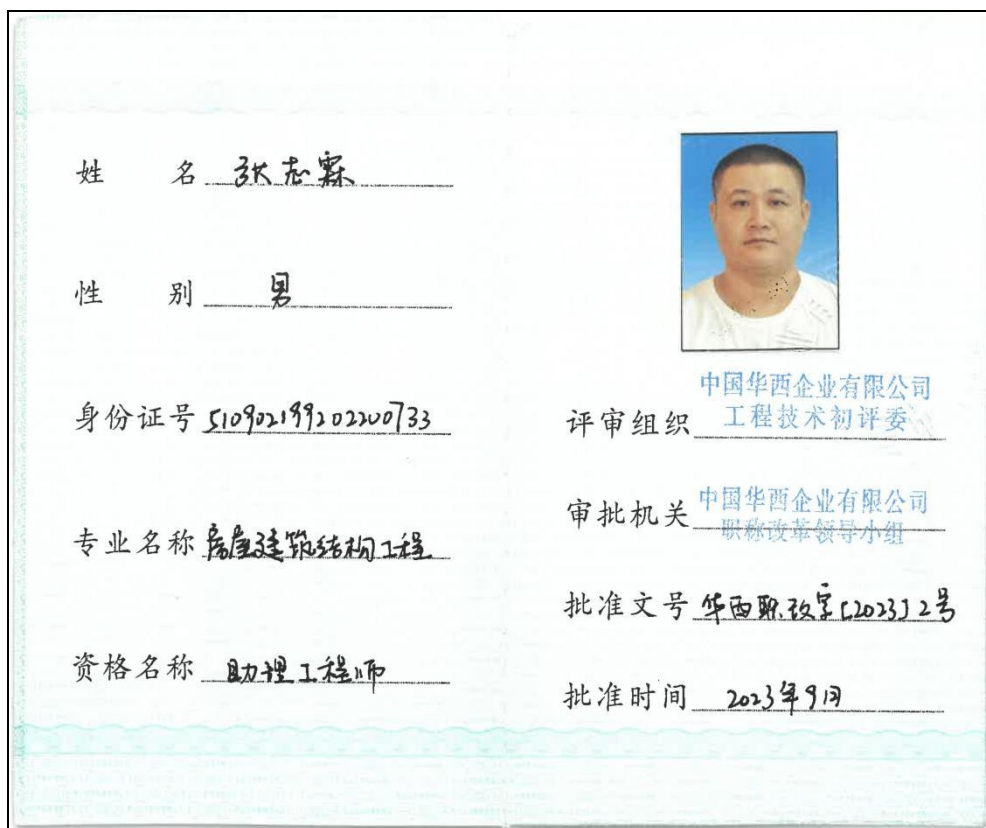 姓 名 张志霖
性 别 男
身份证号 510902199202200733
专业名称 房屋建筑结构工程
资格名称 助理工程师
中国华西企业有限公司
评审组织 工程技术初评委
审批机关 中国华西企业有限公司
职称改革领导小组
批准文号 华西职改字[2023]2号
批准时间 2023年9月